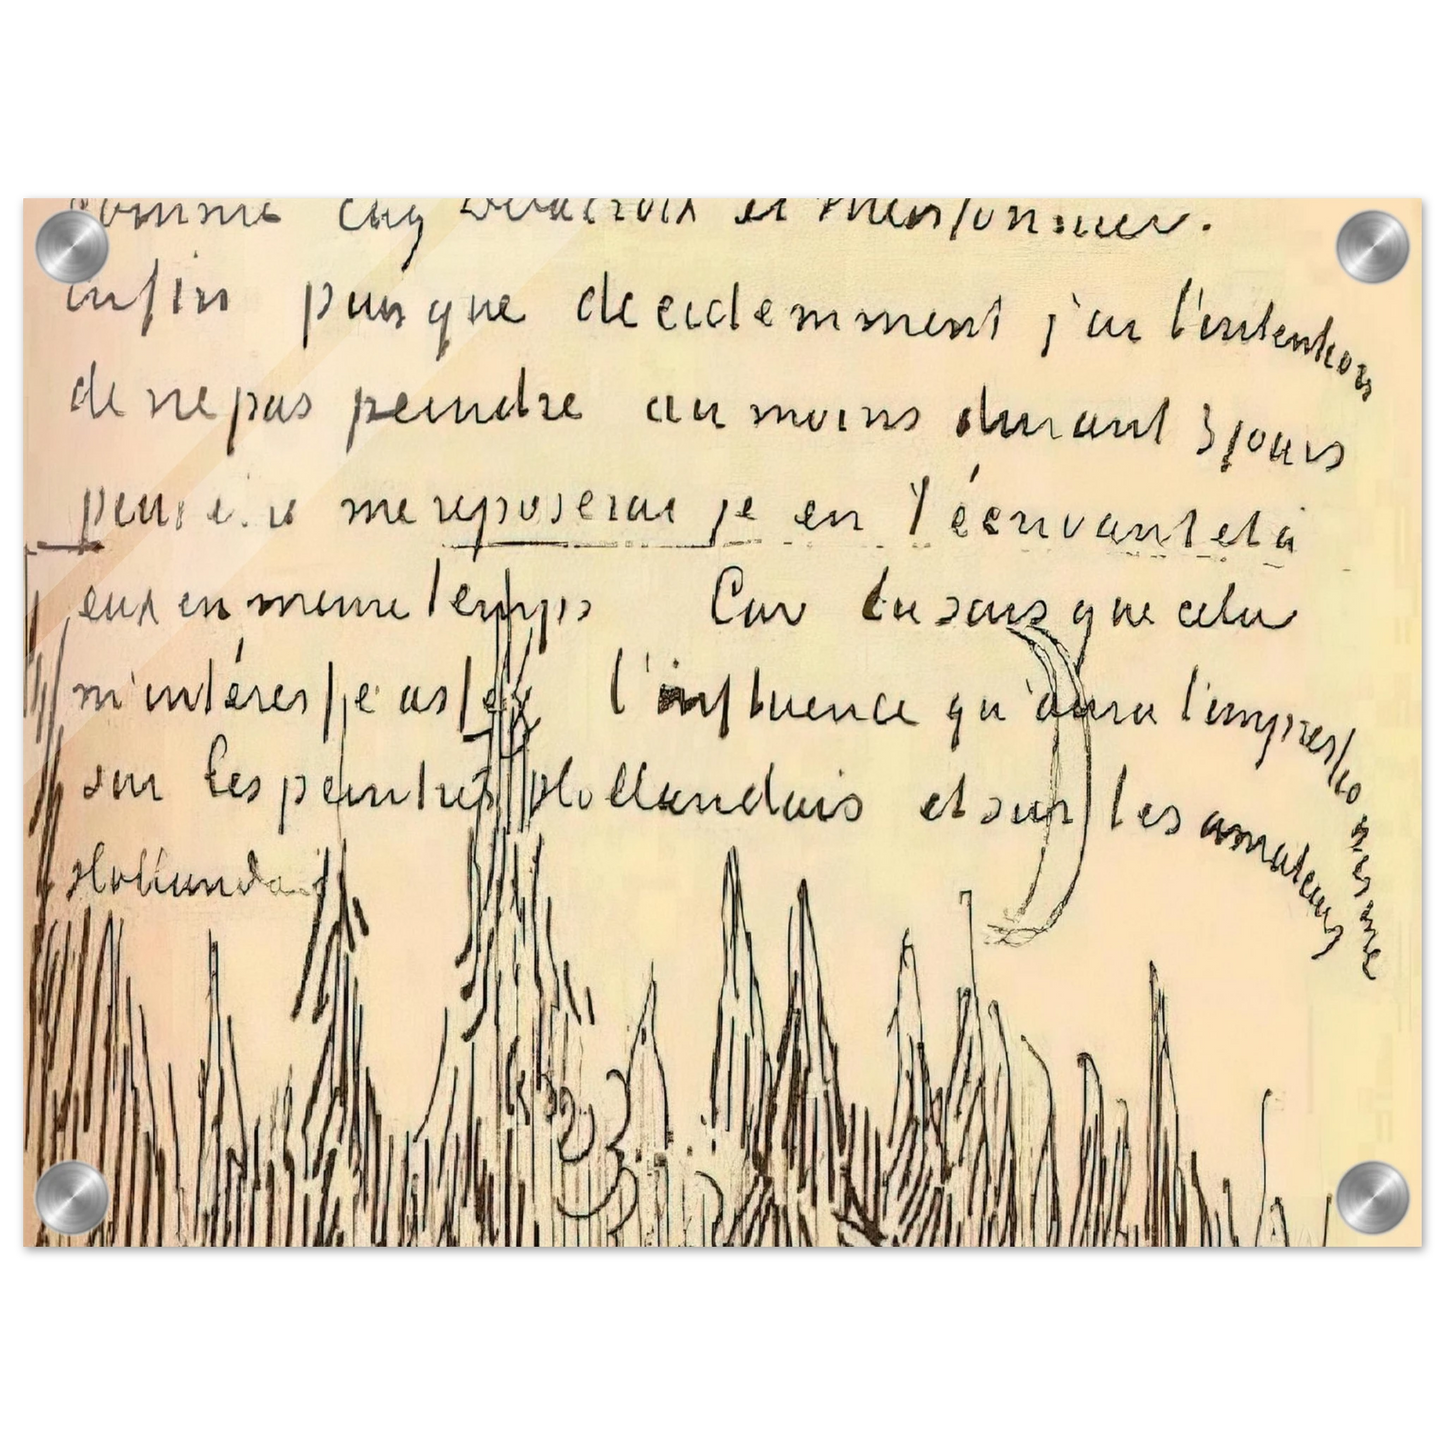 comme chez Delacroix et Meissonnier.
enfin puisque decidemment j'ai l'intention
de ne pas peindre au moins durant 3 jours
peut être me reposerai je en t'écrivant et à
eux en meme temps Car tu sais que cela
m'intéresse assez l'influence qu'aura l'impressionnisme
sur les peintres Hollandais et sur les amateurs
Hollandais